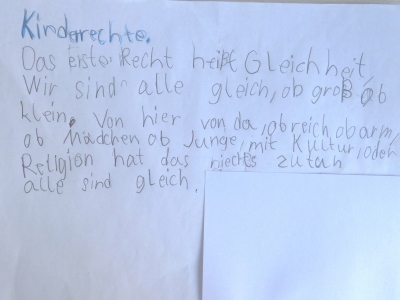 Kinderrechte.
Das erste Recht heißt Gleichheit
Wir sind alle gleich, ob groß, ob
klein. Von hier von da, ob reich ob arm,
ob Mädchen ob Junge, mit Kultur, oder
Religion hat das niechts zutan
alle sind gleich.